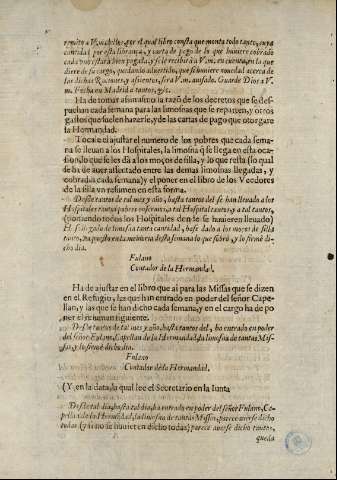 remito a V.m. billete, por el qual libro consta que monta todo tanto, cuya
cantidad por esta librança, y carta de pago de lo que huuiere cobrado
cada vno estará bien pagada, y se le recibirá a V.m. en cuenta, en la que
diere de su cargo, quedando aduertido, que si huuiere nouedad acerca de
las dichas Raciones, y assientos, será V.m. auisado. Guarde Dios a V.
m. Fecha en Madrid a tantos, &c.
Ha de tomar assimismo la razõ de los decretos que se des-
pachan cada semana para las limosnas que se reparten, y otros
gastos que suelen hazerse, y de las cartas de pago que otorgare
la Hermandad.
Tocale el ajustar el numero de los pobres que cada sema-
na se lleuan a los Hospitales, la limosna q̃ se llega en esta oca-
siõ, lo que se les dà a los moços de silla, y lo que resta (lo qual
se ha de auer assentado entre las demas limosnas llegadas, y
cobradas cada semana) y el poner en el libro de los Veedores
de la silla vn resumen en esta forma.
Desde tantos de tal mes y año, hasta tantos del se han lleuado a los
Hospitales tantos pobres enfermos, a tal Hospital tantos, y a tal tantos,
(poniendo todos los Hospitales donde se huuieren lleuado)
llegada de limosna tanta cantidad, hase dado a los moços de silla
tanto, ha puesto en la memoria desta semana lo que sobrò, y lo firmè
dicho dia.
Fulano
Contador de la Hermandad.
Ha de ajustar en el libro que ai para las Missas que se dizen
en el Refugio, las que han entrado en poder del señor Cape-
llan, y las que se han dicho cada semana, y en el cargo ha de po-
ner el resumen siguiente.
Desde tantos de tal mes y año, hasta tantos del, ha entrado en poder
del señor Fulano, Capellan de la Hermandad, la limosna de tantas Mis-
sas, y lo firmè dicho dia.
Fulano
Contador de la Hermandad.
(Y en la data, la qual lee el Secretario en la Iunta
Desde tal dia, hasta tal dia, ha entrado en poder del señor Fulano, Ca-
pellan de la Hermandad, la limosna de tantas Missas, parece auerse dicho
todas (y si no se huuieren dicho todas) parece auerse dicho tantas,
queda